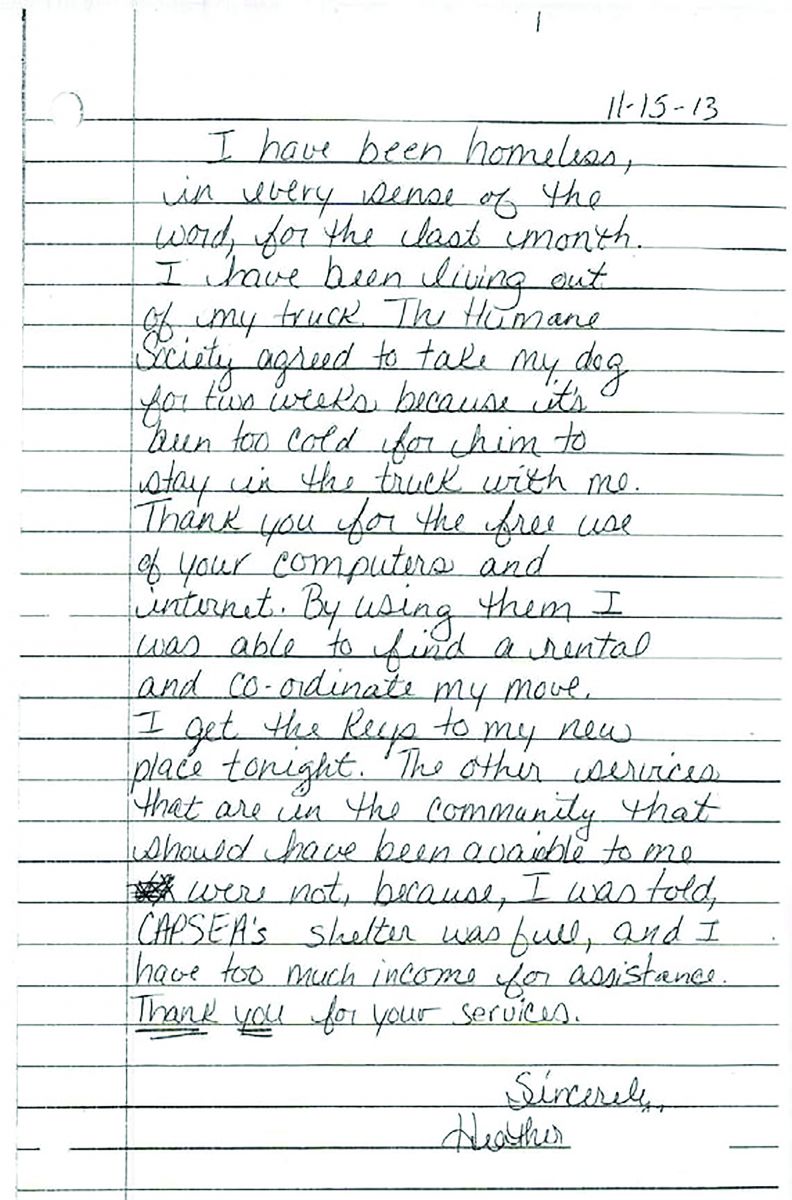 1
11-15-13
I have been homeless,
in every sense of the
word, for the last month.
I have been living out
of my truck. The Humane
Society agreed to take my dog
for two weeks because it's
been too cold for him to
stay in the truck with me.
Thank you for the free use
of your computers and
internet. By using them I
was able to find a rental
and co-ordinate my move.
I get the keys to my new
place tonight. The other services
that are in the community that
should have been avaiable to me
were not, because, I was told,
CAPSEA's shelter was full, and I
have too much income for assistance.
Thank you for your services.
Sincerely,
Heather